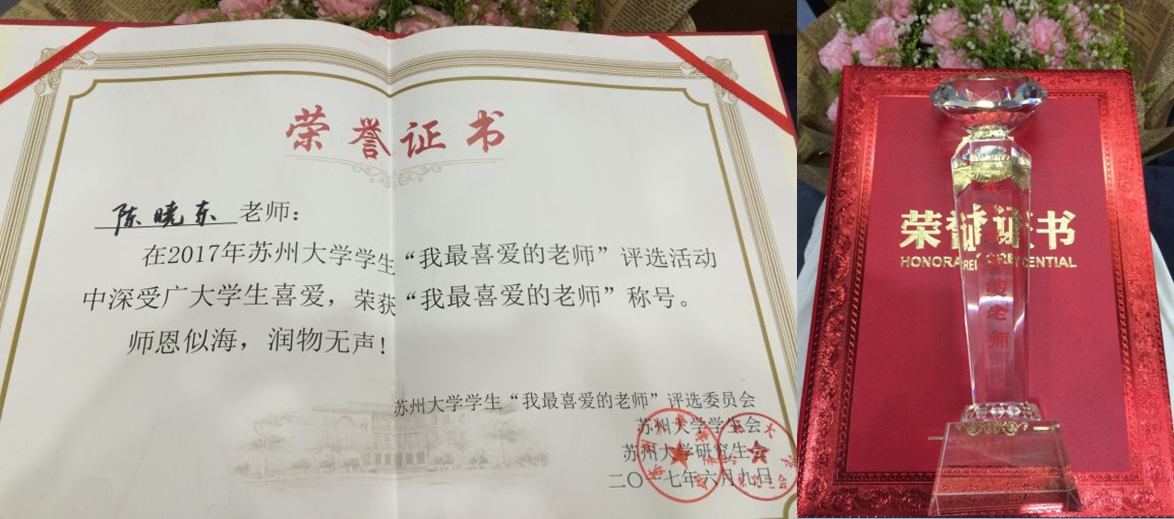 荣誉证书
陈晓东 老师：
在2017年苏州大学学生“我最喜爱的老师”评选活动
中深受广大学生喜爱，荣获“我最喜爱的老师”称号。
师恩似海，润物无声！
苏州大学学生“我最喜爱的老师”评选委员会
苏州大学学生会
苏州大学研究生会
二〇一七年六月九日
荣誉证书
的老师